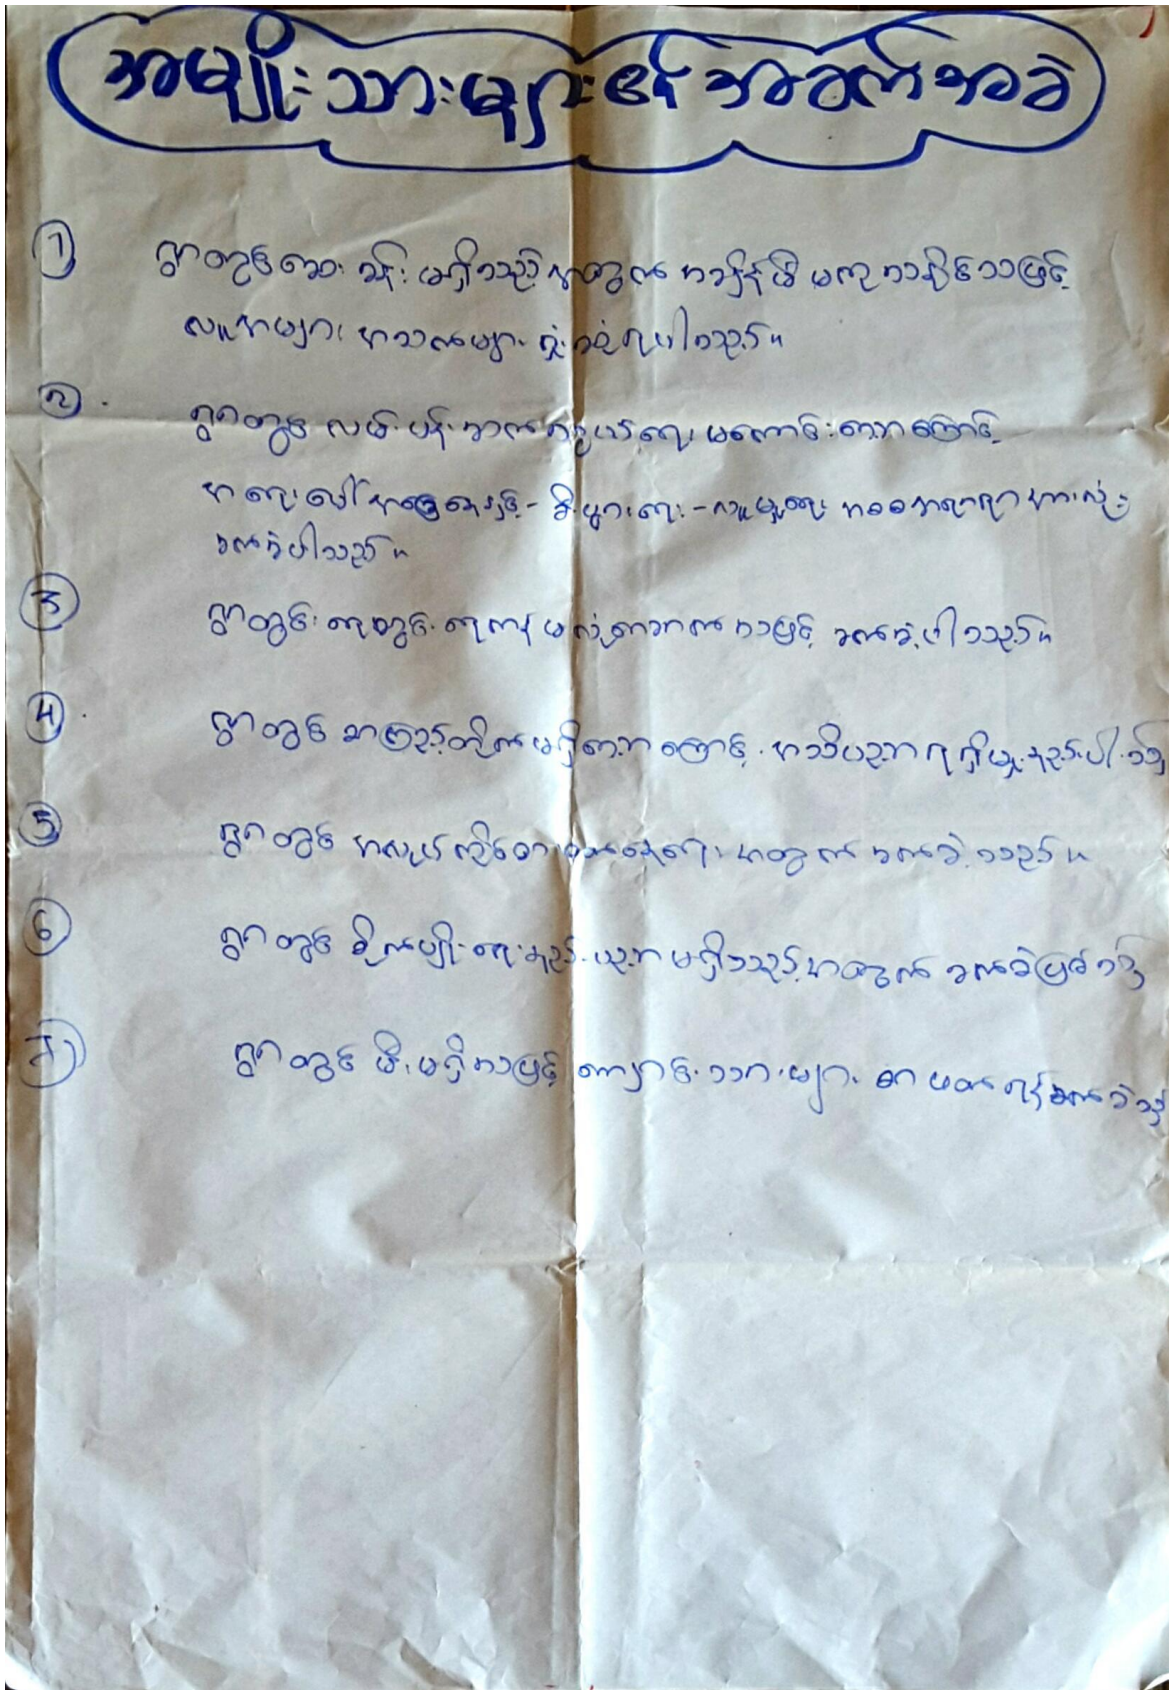 အမျိုးသားများ၏ အခက်အခဲ
1 ရွာတွင်ဆေးခန်းမရှိသည့်အတွက် အချိန်မီ မကုသနိုင်သဖြင့်
လူအများ အသက်များ ရှုံးရပါသည်။
2 ရွာတွင် လမ်းပန်းဆက်သွယ်ရေး မကောင်းသောကြောင့်
အရေးပေါ်အခြေနေနှင့် - စီးပွားရေး - လူမှုရေး အစစအရာရာ အားလုံး
ခက်ခဲပါသည်။
3 ရွာတွင်း ရေတွင်း ရေကန် မလုံလောက်သဖြင့် ခက်ခဲပါသည်။
4 ရွာတွင် စာကြည့်တိုက်မရှိသောကြောင့် အသိပညာ ရရှိမှု နည်းပါးသည်
5 ရွာတွင် အလုပ်ကိုင် အတွက် ခက်ခဲသည်။
6 ရွာတွင် စိုက်ပျိုးရေးနည်းပညာ မရှိသည့်အတွက် ခက်ခဲဖြစ်သည်
7 ရွာတွင် မီးမရှိသဖြင့် ကျောင်းသားများ စာဖတ်ရန်ခက်ခဲသည်